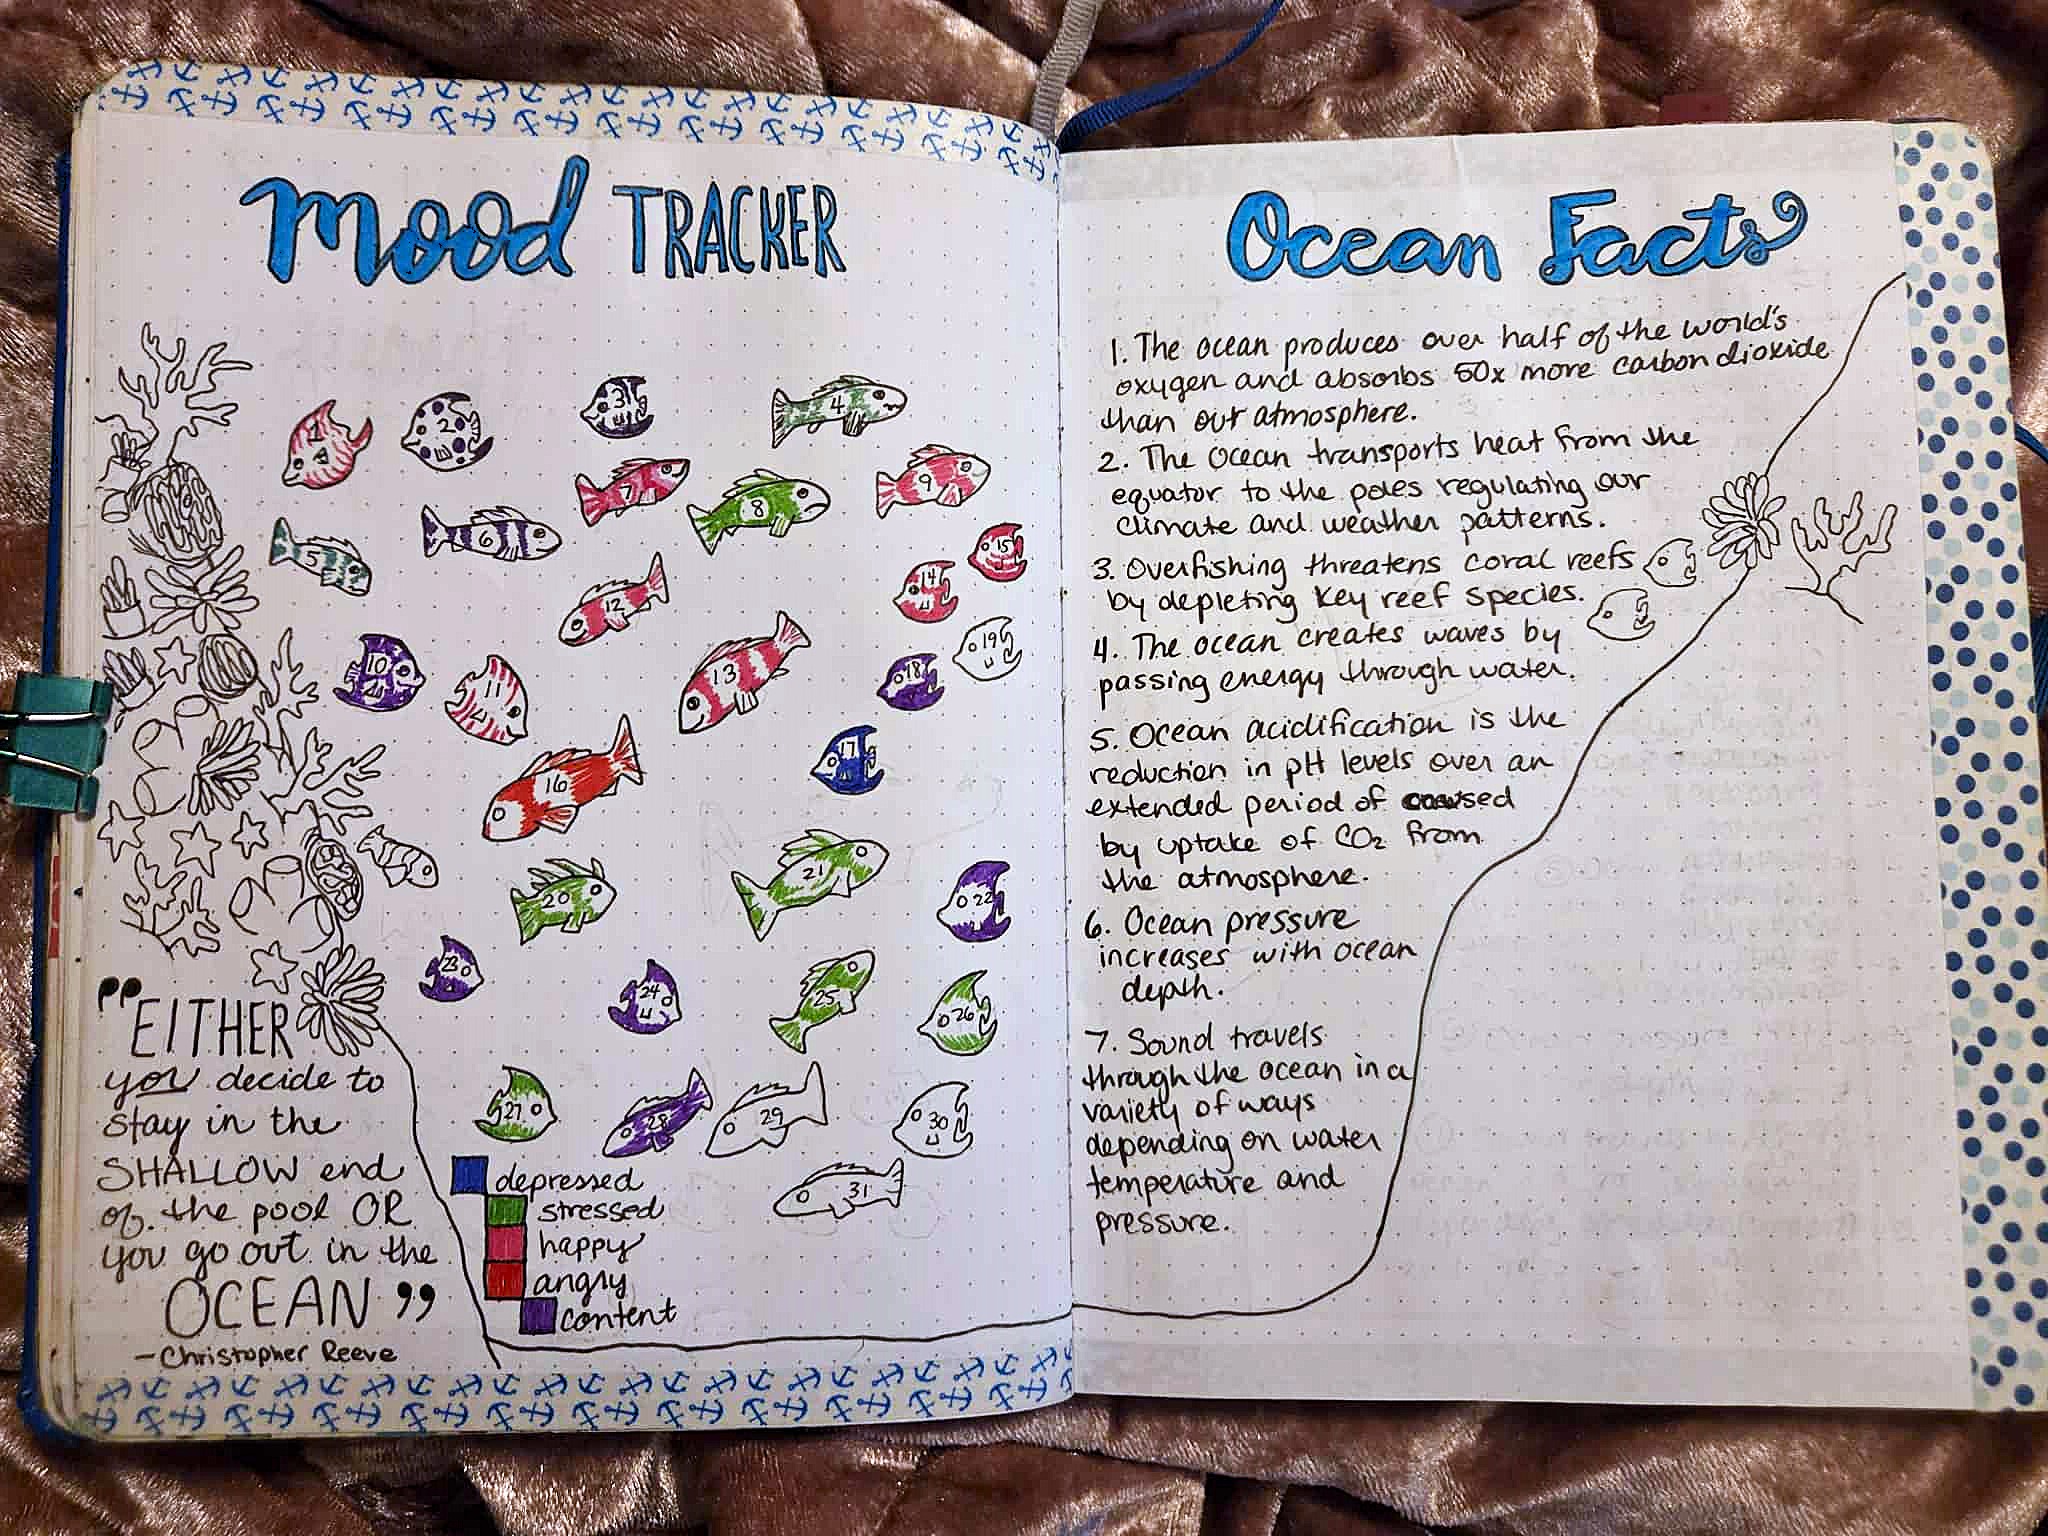 Mood TRACKER
1
2
3
4
5
6
7
8
9
10
11
12
13
14
15
16
17
18
19
20
21
22
23
24
25
26
27
28
29
30
31
"EITHER
you decide to
stay in the
SHALLOW end
of the pool OR
you go out in the
OCEAN"
-Christopher Reeve
depressed
stressed
happy
angry
content
Ocean Facts
1. The ocean produces over half of the world's
oxygen and absorbs 50x more carbon dioxide
than our atmosphere.
2. The Ocean transports heat from the
equator to the poles regulating our
climate and weather patterns.
3. Overfishing threatens coral reefs
by depleting key reef species.
4. The ocean creates waves by
passing energy through water.
5. Ocean acidification is the
reduction in pH levels over an
extended period of caused
by uptake of CO₂ from
the atmosphere.
6. Ocean pressure
increases with ocean
depth.
7. Sound travels
through the ocean in a
variety of ways
depending on water
temperature and
pressure.